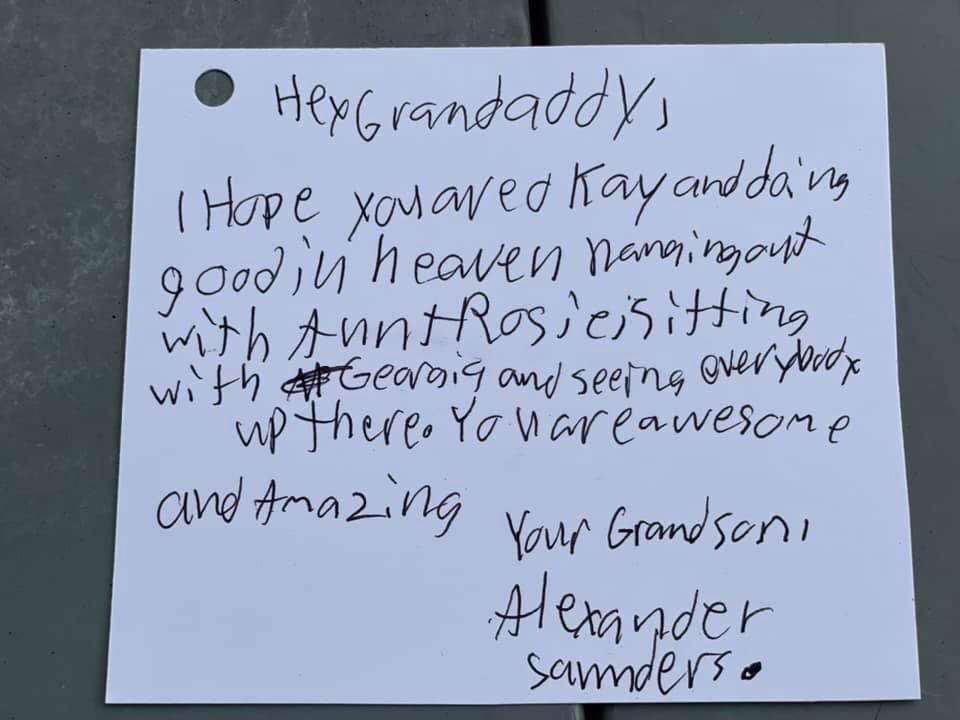 Hey Grandaddy,
I Hope you are o Kay and doing
good in heaven hanging out
with Aunt Rosie, sitting
with Georgia and seeing everybody
up there. You are awesome
and Amazing
Your Grandson,
Alexander
saunders.